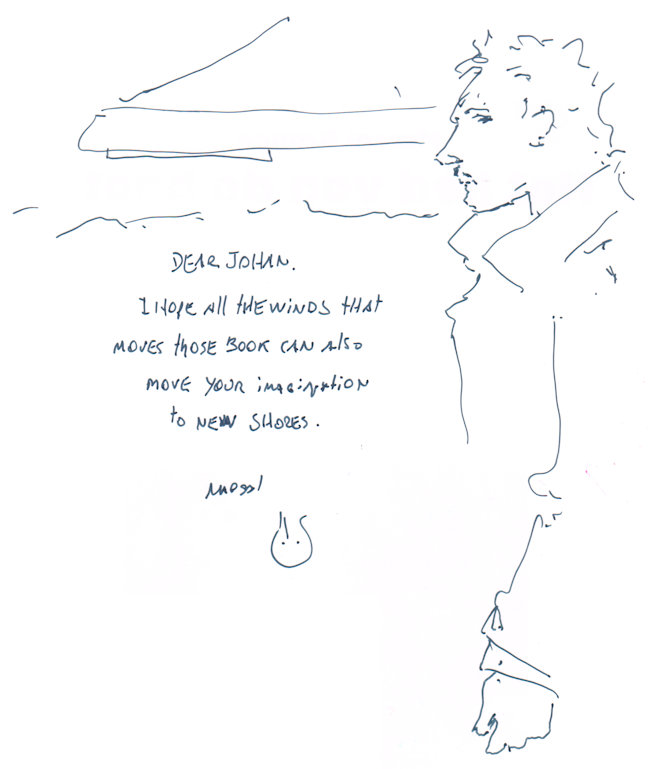 DEAR JOHAN.
I HOPE ALL THE WINDS THAT
MOVES THOSE BOOK CAN ALSO
MOVE YOUR IMAGINATION
TO NEW SHORES.